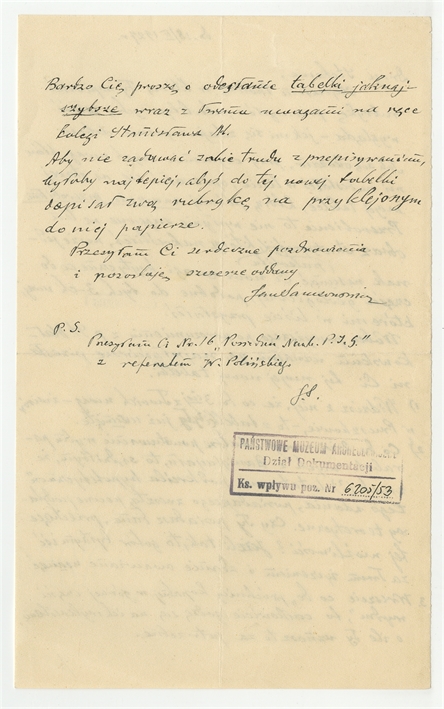 Bardzo Cię proszę o odesłanie tabelki jaknaj-
szybsze wraz z Twemi uwagami na ręce
kolegi Stanisława M.
Aby nie zadawać sobie trudu z przepisywaniem,
byłoby najlepiej, abyś do tej nowej tabelki
dopisał swą rubrykę na przyklejonym
do niej papierze.
Przesyłam Ci serdeczne pozdrowienia
i pozostaję szczerze oddany
P.S.
Przesyłam Ci No. 16 „Posiedzeń Nauk. P.I.G."
z referatem W. Polińskiego
PAŃSTWOWE MUZEUM
Dział Dokumentacji
Ks. wpływu poz. Nr 6205/53